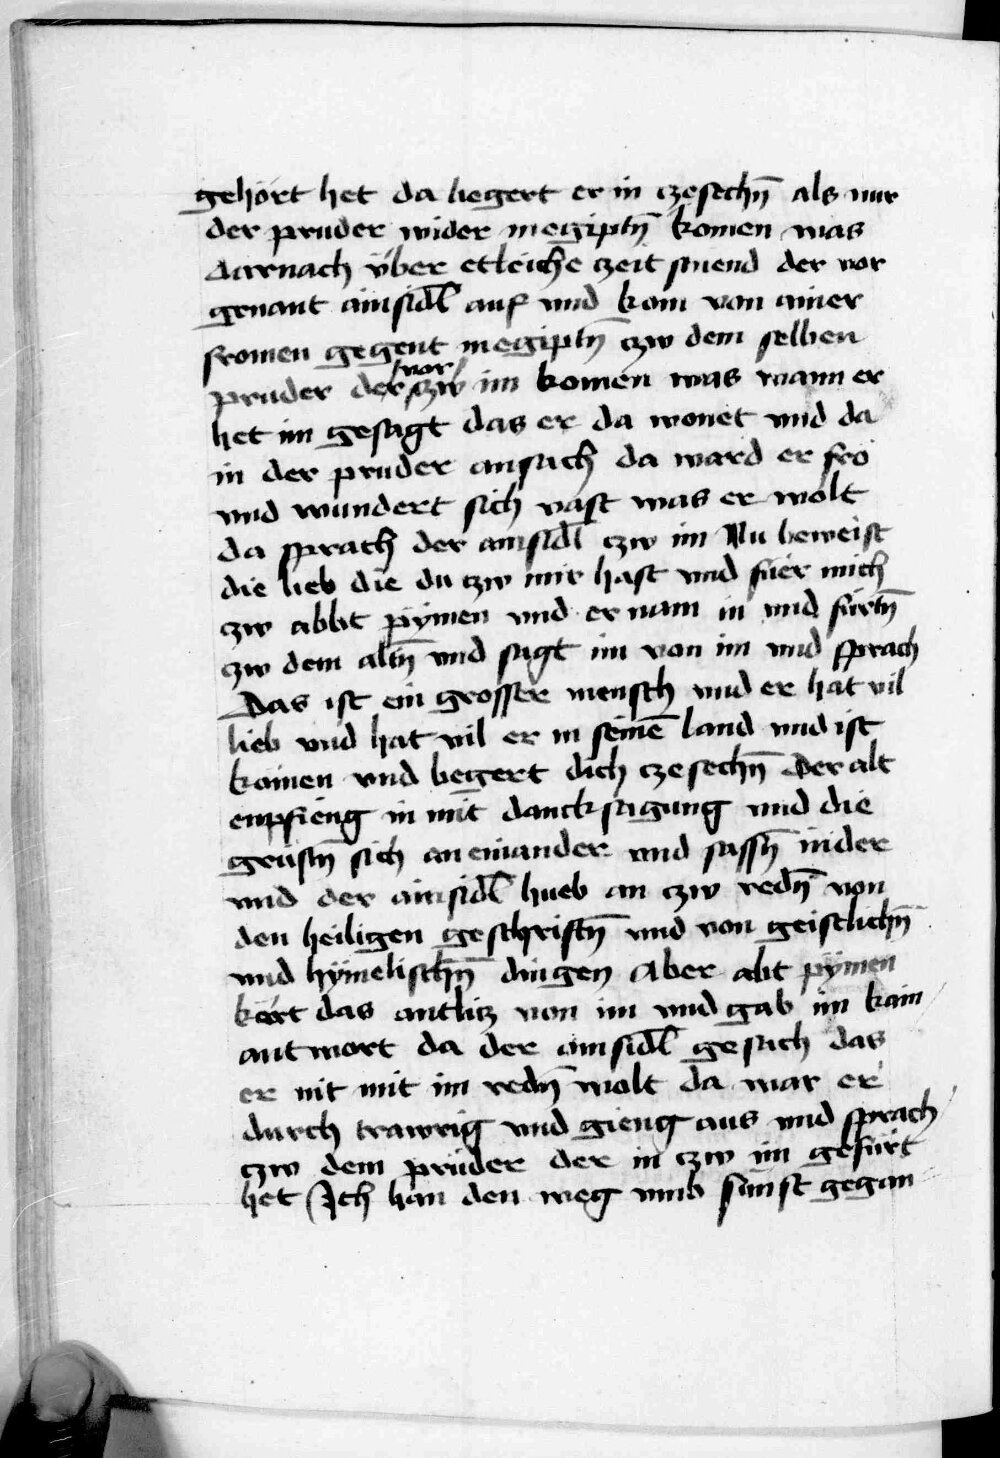 gehört het da begert er in czesechn̄ als nur
der pruder wider inegiptn̄ komen was
Darnach vber etleiche czeit stuend der vor
genant ainsidl̄ auf vnd kom von ainer
fromen gegent inegiptn̄ czw dem selben
pruder der vor czw im komen was wann er
het im gesagt das er da wonet vnd da
in der pruder ansach da ward er fro
vnd wundert sich vast was er wolt
da sprach der ainsidl̄ czw im Nu beweist
die lieb die du czw mir hast vnd füer mich
czw abbt pÿmen vnd er nam in vnd fürtn̄
czw dem altn̄ vnd sagt im von im vnd sprach
Das ist ein grosser mensch vnd er hat vil
lieb vnd hat vil er in seinē land vnd ist
komen vnd begert dich czesechn̄ Der alt
enpfieng in mit dancksagung vnd die
grüstn̄ sich an einander vnd sassn̄ nider
vnd der ainsidl̄ hueb an czw redn̄ von
den heiligen geschriftn̄ vnd von geistlichn̄
vnd hÿmelischn̄ dingen Aber abt pÿmen
kört das antlitz von im vnd gab im kain
antwort da der ainsidl̄ gesach das
er nit mit im redn̄ wolt da war er
durch trawrig vnd gieng aus vnd sprach
czw dem prüder der in czw im gefürt
het Ich han den weg vmb sünst gegan